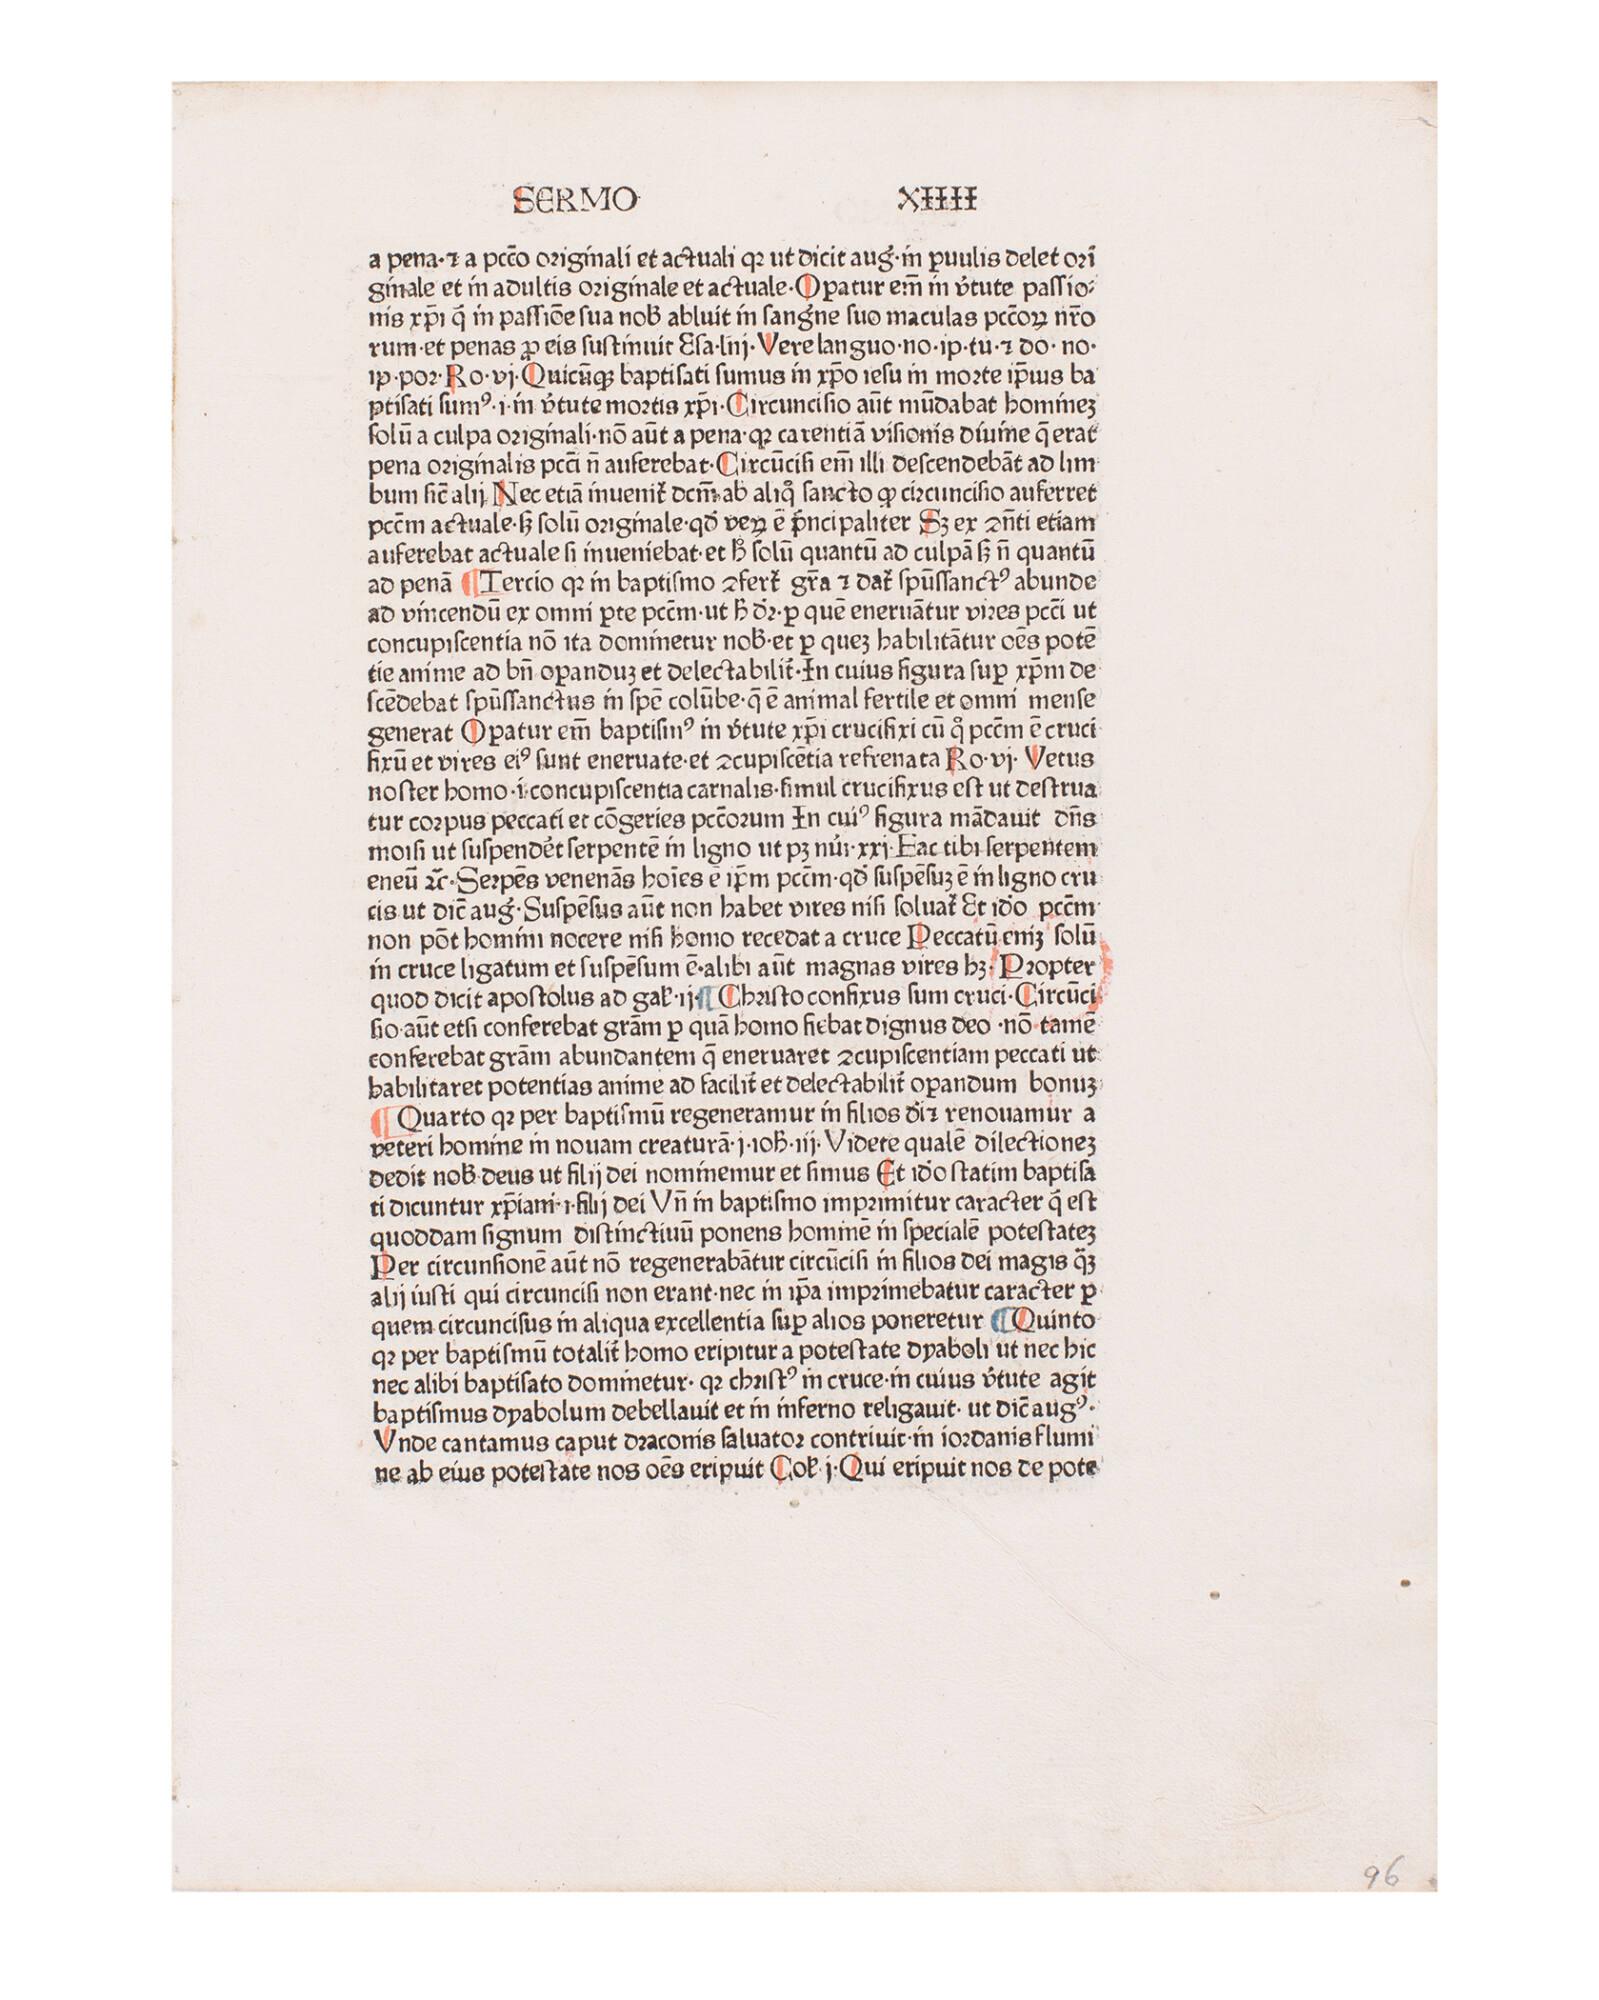 SERMO XIIII
a pena·⁊ a pcc̄o originali et actuali qꝛ ut dicit aug̉·in ꝑuulis delet ori
ginale et in adultis originale et actuale·Opatur em̄ in v̉tute passio⸗
nis xp̄i q̄ in passiōe sua nob̉ abluit in sang̉ne suo maculas pcc̄oꝝ nr̄o
rum·et penas ꝓ eis sustinuit Esa·liij·Vere languo·no·ip·tu·⁊ do·no·
ip·por·Ro·vj·Quicūqꝫ baptisati sumus in xp̄o iesu in morte ip̄ius ba
ptisati sumꝰ·i·in v̉tute mortis xp̄i·Circuncisio aūt mūdabat homineꝫ
solū a culpa originali·nō aūt a pena·qꝛ carentiā visionis diuine q̄ erat
pena originalis pcc̄i n̄ auferebat·Circūcisi em̄ illi descendebāt ad lim
bum sic̄ alij Nec etiā inuenit̉ dcm̄ ab aliqͦ sancto ꝙ circuncisio auferret
pcc̄m actuale·sꝫ solū originale·qd̉ veꝝ ē p̉ncipaliter Sꝫ ex ↄn̄ti etiam
auferebat actuale si inueniebat·et hͦ solū quantū ad culpā sꝫ n̄ quantū
ad penā ¶Tercio qꝛ in baptismo ↄfert̉ gr̄a ⁊ dat̉ spūssanctꝰ abunde
ad vincendū ex omni ꝑte pcc̄m·ut h̉ d̉r·ꝑ quē eneruātur vires pcc̄i ut
concupiscentia nō ita dominetur nob̉·et ꝑ queꝫ habilitātur oēs potē
tie anime ad bn̄ oꝑanduꝫ et delectabilit̉·In cuius figura suꝑ xp̄m de
scēdebat spūssanctus in spē colūbe·q̄ ē animal fertile et omni mense
generat Opatur em̄ baptismꝰ in v̉tute xp̄i crucifixi cū qͦ pcc̄m ē cruci
fixū et vires eiꝰ sunt eneruate·et ↄcupiscētia refrenata Ro·vj·Vetus
noster homo·i·concupiscentia carnalis·simul crucifixus est ut destrua
tur corpus peccati et cōgeries pcc̄orum In cuiꝰ figura mādauit dn̄s
moisi ut suspend̉et serpentē in ligno ut pꝫ nu̾i·xxj·Fac tibi serpentem
eneū ⁊c̄·Serpēs venenās hoīes ē ip̄m pcc̄m·qd̉ suspēsuꝫ ē in ligno cru
cis ut dic̄ aug̉·Suspēsus aūt non habet vires nisi soluat̉ Et id̉o pcc̄m
non pōt homini nocere nisi homo recedat a cruce Peccatū eniꝫ solū
in cruce ligatum et suspēsum ē·alibi aūt magnas vires hꝫ·Propter
quod dicit apostolus ad gal̉·ij·¶Christo confixus sum cruci·Circūci
sio·aūt etsi conferebat grām ꝑ quā homo fiebat dignus deo·nō tamē
conferebat grām abundantem q̄ eneruaret ↄcupiscentiam peccati ut
habilitaret potentias anime ad facilit̉ et delectabilit̉ oꝑandum bonuꝫ
¶Quarto qꝛ per baptismū regeneramur in filios d̉i⁊ renouamur a
veteri homine in nouam creaturā·j·ioh̉·iij·Videte qualē dilectioneꝫ
dedit nob̉·deus ut filij dei nominemur et simus Et id̉o statim baptisa
ti dicuntur xp̄iani·i·filij dei Vn̄ in baptismo imprimitur caracter q̄ est
quoddam signum distinctiuū ponens hominē in specialē potestateꝫ
Per circunsionē aūt nō regenerabātur circūcisi in filios dei magis qͣꝫ
alij iusti qui circuncisi non erant·nec in ip̄a imprimebatur caracter ꝑ
quem circuncisus in aliqua excellentia suꝑ alios poneretur ¶Quinto
qꝛ per baptismū totalit̉ homo eripitur a potestate dyaboli ut nec hic
nec alibi baptisato dominetur·qꝛ christꝰ in cruce·in cuius v̉tute agit
baptismus dyabolum debellauit et in inferno religauit·ut dic̄ augꝰ·
Vnde cantamus caput draconis saluator contriuit·in iordanis flumi
ne ab eius potestate nos oēs eripuit Col̉·j·Qui eripuit nos de pote
96